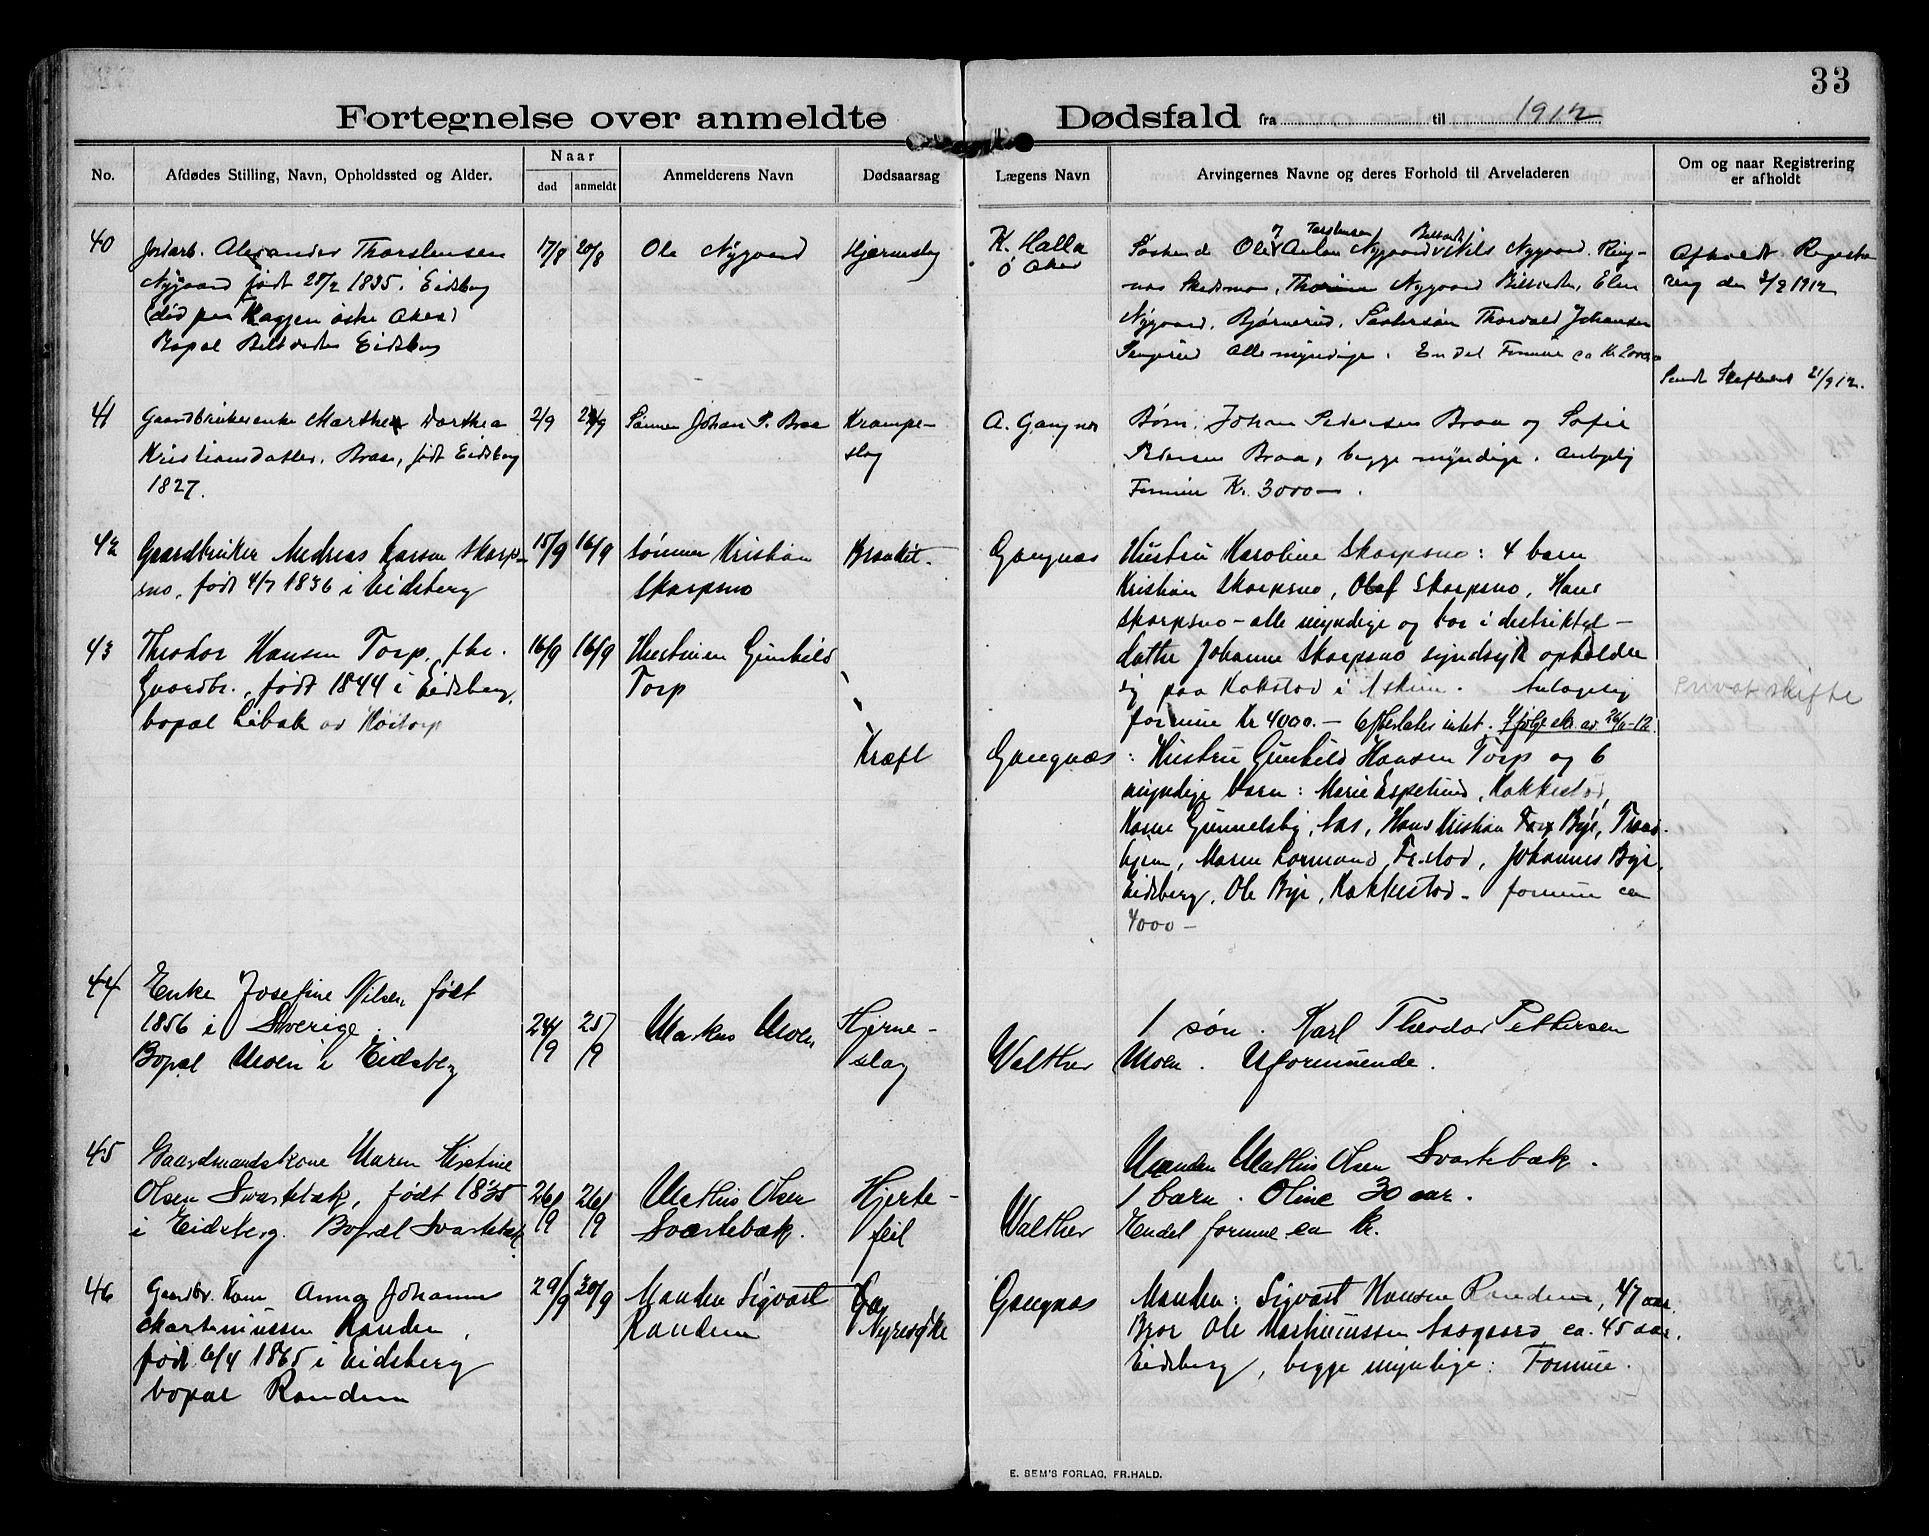 33
Fortegnelse over anmeldte Dødsfald fra til 1912
No.
Afdødes Stilling, Navn, Opholdssted og Alder.
Naar
død
anmeldt
Anmelderens Navn
Dødsaarsag
Lægens Navn
Arvingernes Navne og deres Forhold til Arveladeren
Om og naar Registrering
er afholdt
40
Jordarb. Alexander Thorstensen
Nygaard født 28/2 1835. Eidsberg
(død paa østre Aker)
Bopæl Eidsberg
17/8
20/8
Ole Nygaard
Hjerneslag
K. Halla
Ø Aker
Torstensen
Søskende Ole Anton Nygaard Nils Nygaard. Ring-
nes Skedsmo, Thorine Nygaard Elen
Nygaard. Bjørnerud. Søstersøn Thorvald Johansen
Alle myndige. En del Formue ca Kr. 2000
Afholdt Registre
ring den 3/9 1912
Sendt Skifteret 21/9 12.
41
Gaardbrukerenke Marthe Dorthea
Kristiansdatter. Braa, født Eidsberg
1827.
2/9
Sønnen Johan P. Braa
Krampe-
slag
A. Gangnæs
Børn. Johan Pedersen Braa og Sofie
Pedersen Braa, begge myndige. Antagelig
Formue Kr. 3000 - .
42
Gaardbruker Andreas Larsen Skarps-
sno, født 4/7 1836 i Eidsberg
15/9
16/9
sønnen Kristian
Skarpsno
Bronkit.
Gangnæs
Hustru Karoline Skarpsno: 4 barn
Kristian Skarpsno, Olaf Skarpsno, Hans
Skarpsno - alle myndige og bor i distriktet -
datter Johanne Skarpsno sindsyk opholder
sig paa i Askim. Antagelig
formue Kr 4000. - Efterlater intet. Ifølge skr. av 26/11-12.
Privat skifte
43
Theodor Hansen Torp, fhv.
Gaardbr., født 1844 i Eidsberg,
bopæl Libak av Høitorp
16/9
16/9
Hustruen Gunhild
Torp
Kræft
Gangnæs
: Hustru Gunhild Hansen Torp og 6
myndige barn: Marie Espelund, Kakkestad,
Karne Gunnelsby, Aas, Hans Kristian Torp Bye, Trond-
hjem, Maren Lormand, Fr.stad, Johannes Bye,
Eidsberg, Ole Bye, Kakkestad - formue ca
4000 -
44
Enke Josefine Nilsen født
1856 i Sverige.
Bopæl Moen i Eidsberg
24/9
25/9
Markus Moen
Hjerne-
slag
Walther
1 søn. Karl Theodor Pettersen
Moen. Uformuende.
45
Gaardmandskone Maren Kristine
Olsen Svartebæk, født 1835
i Eidsberg. Bopæl Svartebæk.
26/9
26/9
Mathis Olsen
Svartebæk.
Hjerte-
feil
Walther
Manden Mathis Olsen Svartebæk.
1 barn. Oline 30 aar.
Endel formue ca kr.
46
Gaardbr. kone Anna Johanne
Martiniussen Randem,
født 6/4 1865 i Eidsberg
bopæl Randem
29/9
30/9
Manden Sigvart
Randem
Nyresyke
Gangnæs
Manden: Sigvart Hansen Randem, 47 aar.
Bror Ole Martiniussen Aasgaard ca. 45 aar.
Eidsberg, begge myndige: Formue.
E. SEM'S FORLAG, FR.HALD.